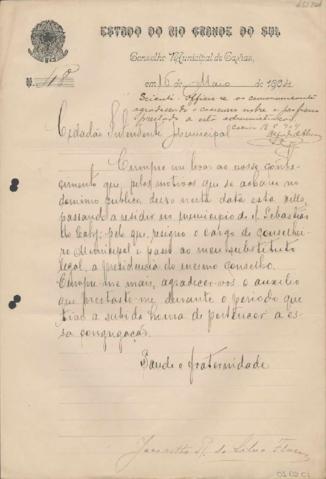 ESTADO DO RIO GRANDE DO SUL
Conselho Municipal de Caxias,
N. 48
em 16 de Maio de 1904
Sciente. Officie-se
agradecendo o concurso
prestado a esta administração
Caxias 18 5 904
Cidadão Intendente Municipal
Cumpre-me levar ao vosso conhe-
cimento que, pelos motivos que se acham no
dominio publico, deixo nesta data esta villa,
passando a residir no municipio de S. Sebastião
do Cahy; pelo que, resigno o cargo de conselhei-
ro Municipal e passo ao meu substituto
legal, a presidencia do mesmo conselho.
Cumpre-me mais, agradecer-vos o auxilio
que prestaste-me durante o periodo que
tive a subida honra de pertencer a es-
sa congregação.
Saude e fraternidade
da Silva